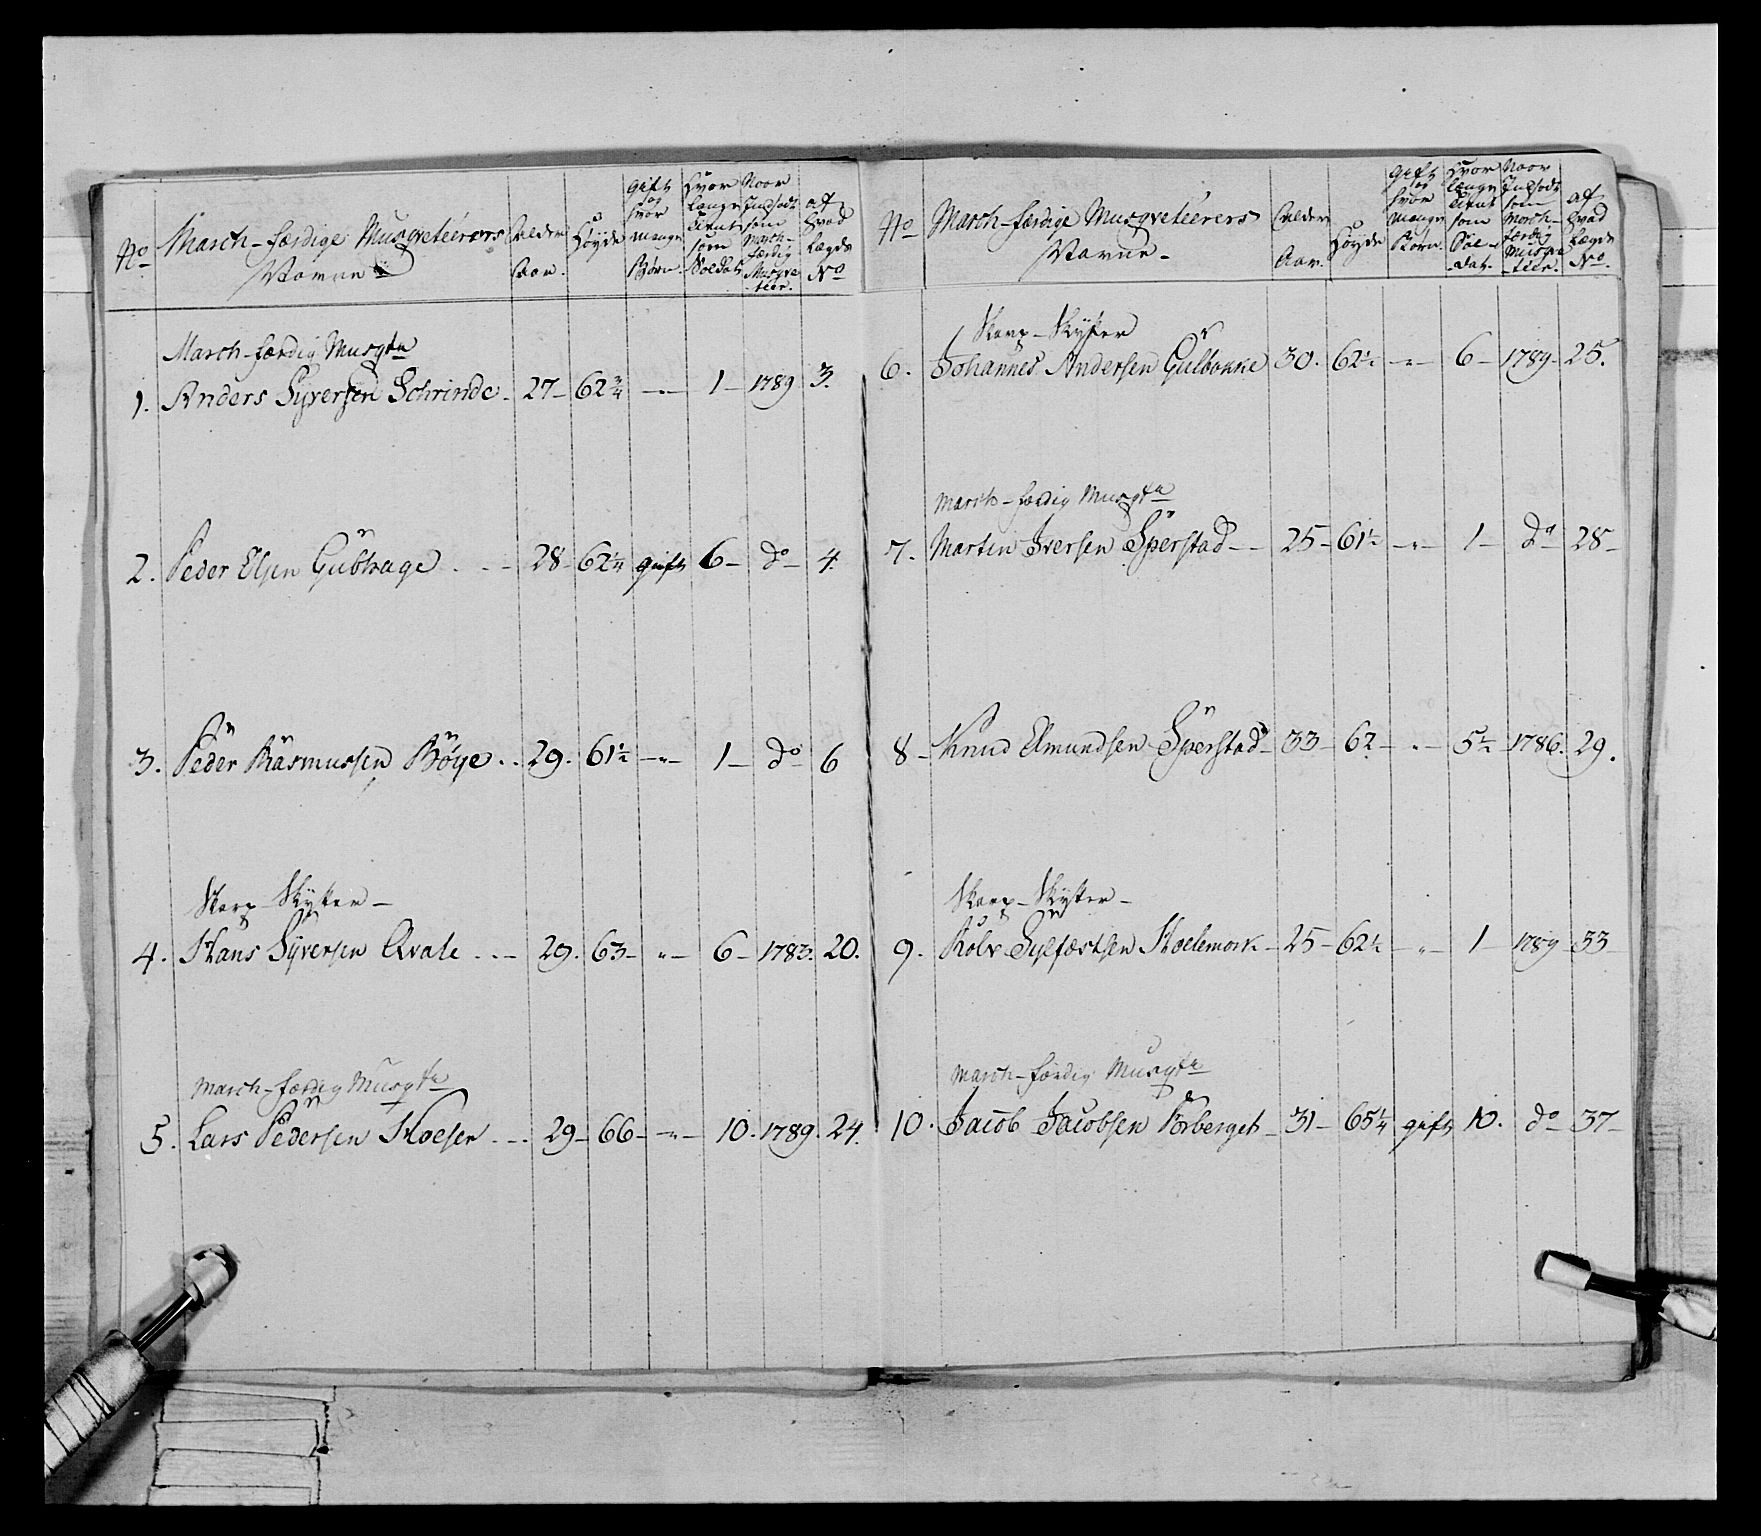 No
March-færdige Musqveteerers
Navne
Alder
Aar.
Höyde
Gift
og
hvor
mange
Börn.
Hvor
længe
tient
som
Soldat
Naar
Indsadt
som
March-
færdig
Musqve
tier.
af
hvad
Lægde
No
March-færdig Musqtr
1. Anders Syversen Schrinde. 27- 62 3/4 -"- 1- 1789 3.
2. Peder Elsen Gubhage . . - 28- 62 1/4 gift 6- do- 4.
3. Peder Rasmussen Böÿe . . 29. 61 1/2 -"- 1- do 6
Skarp-Skytter-
4. Hans Syversen Qvale . . - 29. 63- "- 6- 1783. 20.
March-færdig Musqtr
5. Lars Pedersen Moesen . - - 29- 66- -"- 10. 1789. 24.
No
March-færdige Musqveteerers
Navne-
Alder
Aar.
Höyde
Gift
og
hvor
mange
Börn.
Hvor
længe
tient
som
Sol-
dat.
Naar
Indsadt
som
March-
færdig
Musqve
-tier.
af
hvad
Lægde
No.
Skarp-Skytter
6. Johannes Andersen Gulbakke 30. 62 1/2 -"- 6- 1789- 25.
March-færdig Musqtr
7. Marten Iversen Sperstad-- 25- 61 1/2 -"- 1- do 28-
8- Knud Amundsen Sperstad- 33- 62- "- 5 1/2 1786. 29.
Skarp-Skytter-
9. Rolv Sylfæstsen Moelemork- 25- 62 1/2 -"- 1- 1789- 33-
March-færdig Musqtr
10. Jacob Jacobsen Förberget- 31- 65 1/4 gift 10. do 37-